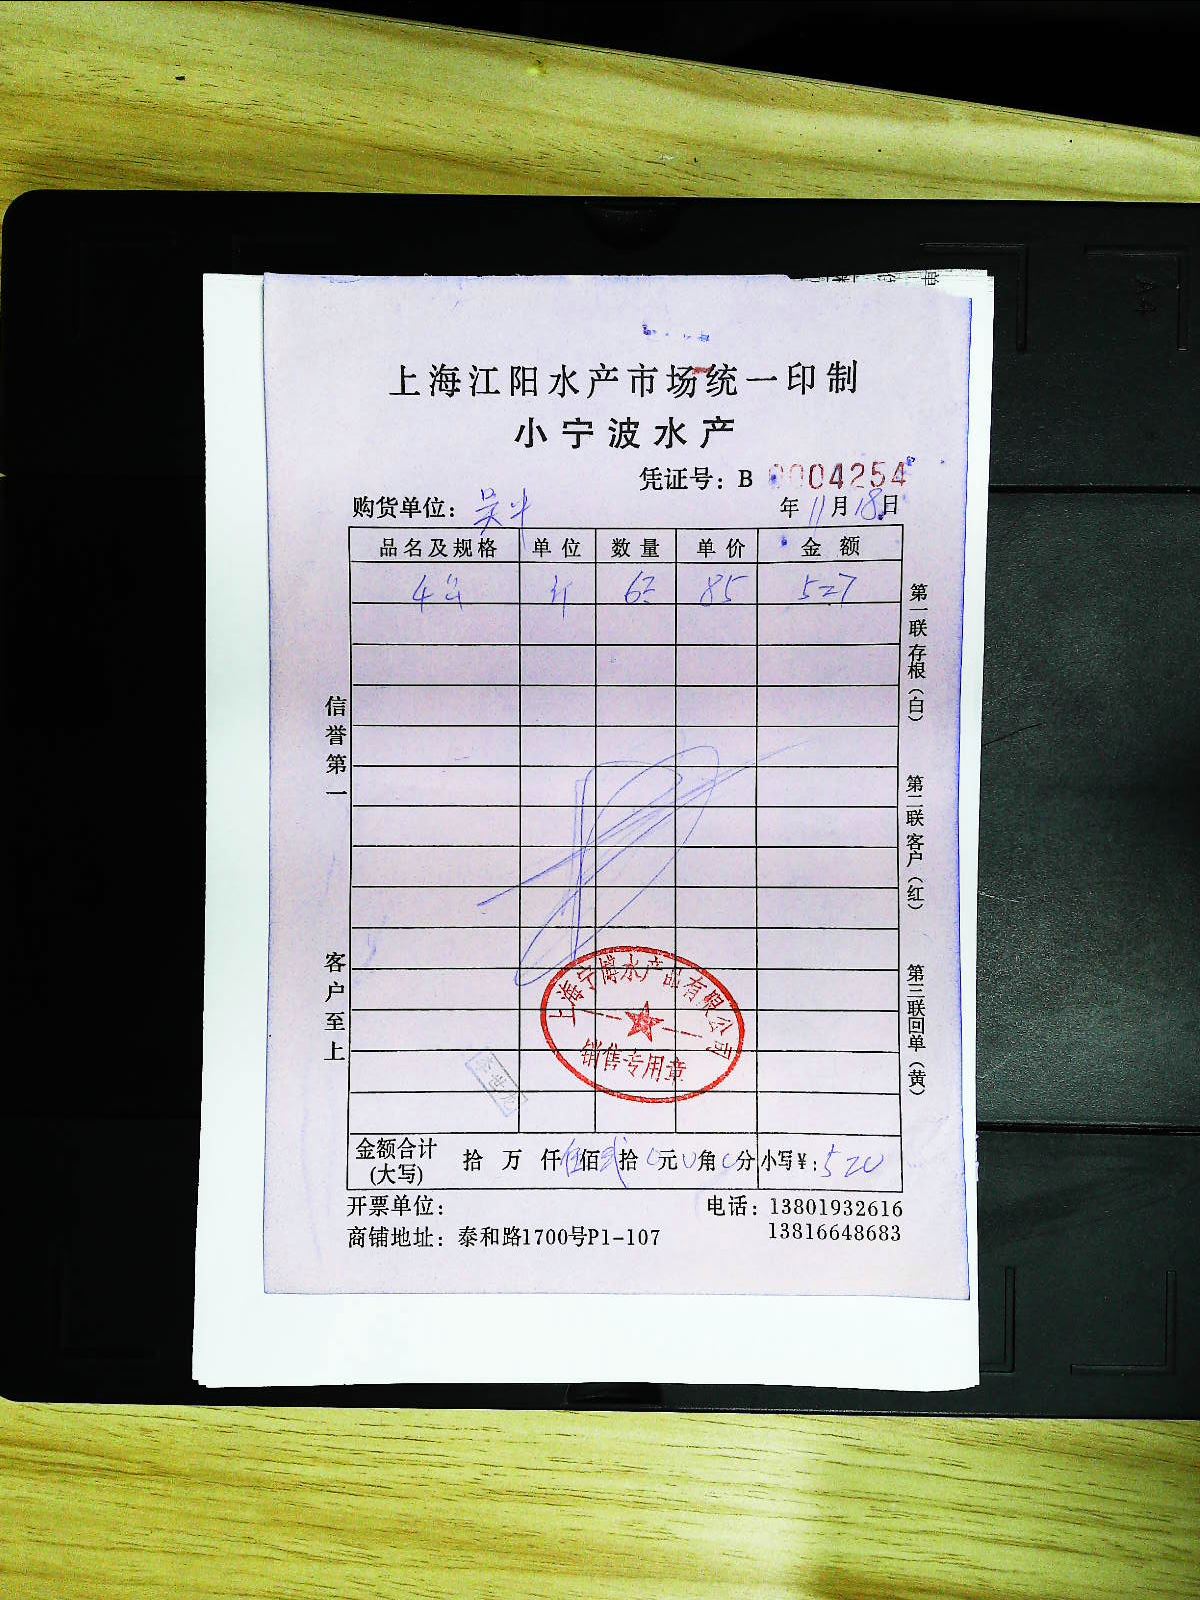 上海江阳水产市场统一印制
小宁波水产
凭证号：B 0004254
购货单位：
年 11月18日
品名及规格 单位 数量 单价 金额
4 斤 62 85 527
信誉第一
客户至上
第一联存根（白）
第二联客户（红）
第三联回单（黄）
上海宁博水产品有限公司
销售专用章
金额合计(大写) 拾 万 仟 伍佰 贰拾 0元 0角 0分 小写¥：520
开票单位：
电话：13801932616
13816648683
商铺地址：泰和路1700号P1-107
A4